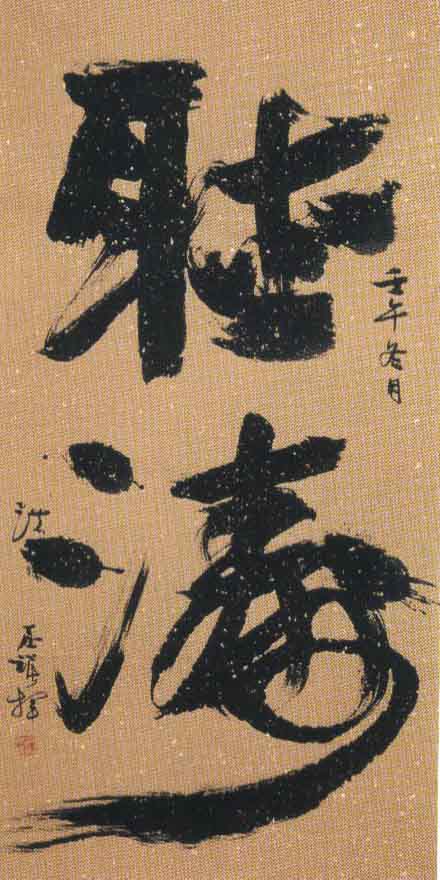 聽濤
壬午冬月